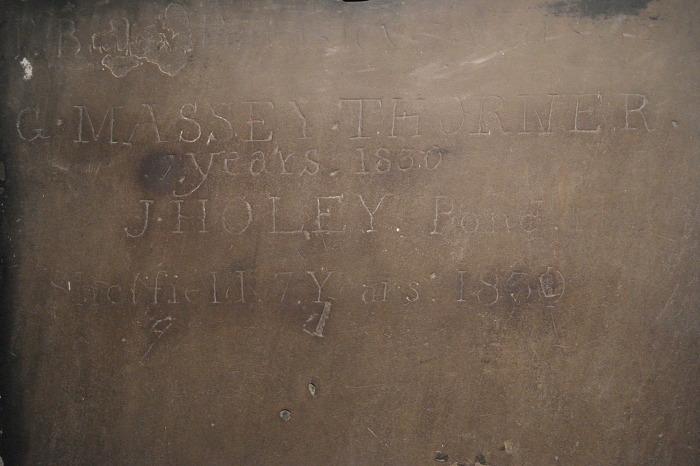 G. MASSEY. THORNER
7 years. 1830
J. HOLEY. Pond
Sheffield. 7. Years. 1830